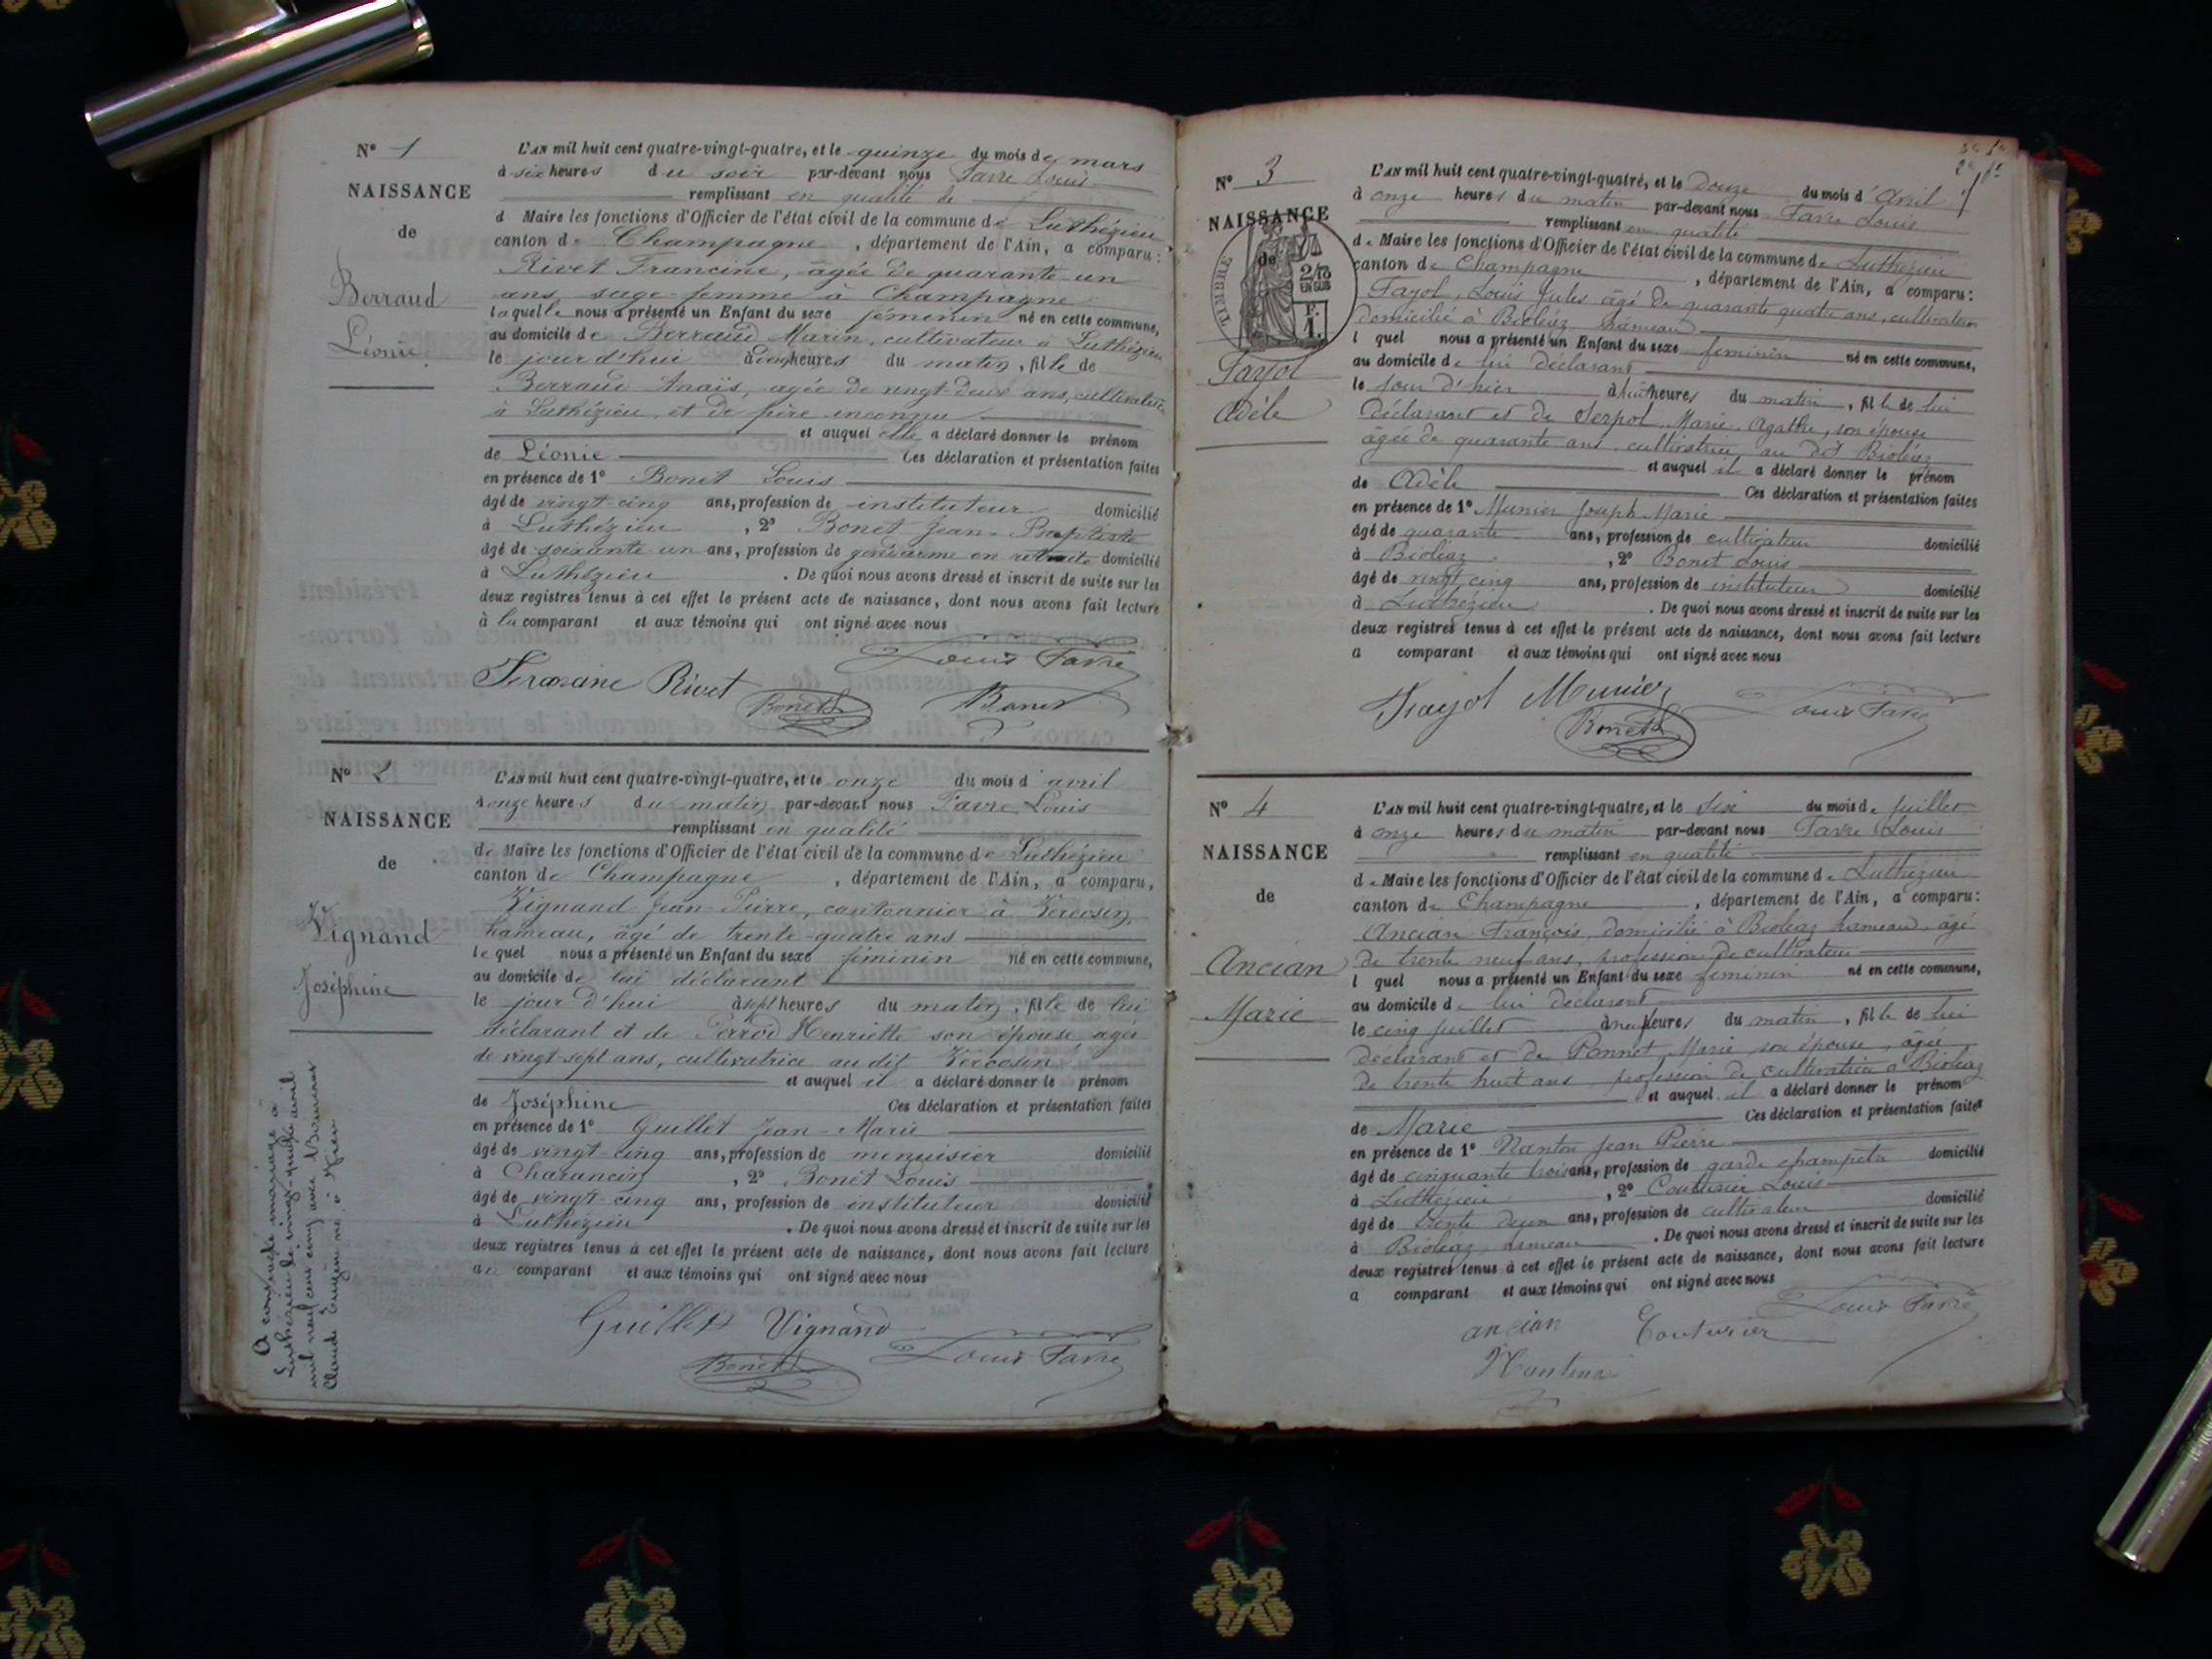 N° 1
NAISSANCE
de
Berraud
Léonie
L'AN mil huit cent quatre-vingt-quatre, et le quinze du mois de mars
à six heures du soir par-devant nous Favre Louis
remplissant en qualité de
d Maire les fonctions d'Officier de l'état civil de la commune de Luthézieu
canton de Champagne, département de l'Ain, a comparu:
Rivet Francine, âgée de quarante-un
ans, sage-femme à Champagne
laquelle nous a présenté un Enfant du sexe féminin né en cette commune,
au domicile de Berraud Marin, cultivateur à Luthézieu
le jour d'hui à heures du matin, fille de
Berraud Anaïs, agée de vingt-deux ans, cultivatrice
à Luthézieu, et de père inconnu
et auquel elle a déclaré donner le prénom
de Léonie Ces déclaration et présentation faites
en présence de 1° Bonet Louis
âgé de vingt-cinq ans, profession de instituteur domicilié
à Luthézieu, 2° Bonet Jean-Baptiste
âgé de soixante-un ans, profession de gendarme en retraite domicilié
à Luthézieu. De quoi nous avons dressé et inscrit de suite sur les
deux registres tenus à cet effet le présent acte de naissance, dont nous avons fait lecture
à la comparant et aux témoins qui ont signé avec nous
Louis Favre
Rivet Bonet Bonet
N° 2
NAISSANCE
de
Vignand
Joséphine
L'AN mil huit cent quatre-vingt-quatre, et le onze du mois d'avril
à onze heures du matin par-devant nous Favre Louis
remplissant en qualité
de Maire les fonctions d'Officier de l'état civil de la commune de Luthézieu
canton de Champagne, département de l'Ain, a comparu,
Vignand Jean-Pierre, cantonnier à Vercosin,
hameau, âgé de trente-quatre ans
lequel nous a présenté un Enfant du sexe féminin né en cette commune,
au domicile de lui déclarant
le jour d'hui à sept heures du matin, fille de lui
déclarant et de Perrod Henriette son épouse agée
de vingt-sept ans, cultivatrice au dit Vercosin
et auquel il a déclaré donner le prénom
de Joséphine Ces déclaration et présentation faites
en présence de 1° Guillet Jean-Marie
âgé de vingt-cinq ans, profession de menuisier domicilié
à Charancin, 2° Bonet Louis
âgé de vingt-cinq ans, profession de instituteur domicilié
à Luthézieu. De quoi nous avons dressé et inscrit de suite sur les
deux registres tenus à cet effet le présent acte de naissance, dont nous avons fait lecture
au comparant et aux témoins qui ont signé avec nous
Guillet Vignand
Bonet Louis Favre
A contracté mariage à
Luthézieu le vingt-quatre avril
mil neuf cent cinq avec
Claude Eugène né à
N° 3
NAISSANCE
de
TIMBRE
2/10
EN SUS
F.
1.
Fayol
Adèle
L'AN mil huit cent quatre-vingt-quatre, et le Douze du mois d'Avril
à onze heures du matin par-devant nous Favre Louis
remplissant en qualité
de Maire les fonctions d'Officier de l'état civil de la commune de Luthézieu
canton de Champagne, département de l'Ain, a comparu:
Fayol, Louis Jules âgé de quarante quatre ans, cultivateur
domicilié à Bioléaz hameau
l quel nous a présenté un Enfant du sexe féminin né en cette commune,
au domicile de lui déclarant
le Jour d'hier à huit heures du matin, fille de lui
Déclarant et de Serpol Marie Agathe, son épouse
âgée de quarante ans, cultivatrice, au dit Bioléaz
et auquel il a déclaré donner le prénom
de Adèle Ces déclaration et présentation faites
en présence de 1° Munier Joseph Marie
âgé de quarante ans, profession de cultivateur domicilié
à Bioléaz, 2° Bonet Louis
âgé de vingt cinq ans, profession de instituteur domicilié
à Luthézieu. De quoi nous avons dressé et inscrit de suite sur les
deux registres tenus à cet effet le présent acte de naissance, dont nous avons fait lecture
a comparant et aux témoins qui ont signé avec nous
Fayol Munier
Bonet Louis Favre
N° 4
NAISSANCE
de
Ancian
Marie
L'AN mil huit cent quatre-vingt-quatre, et le Six du mois de Juillet
à onze heures du matin par-devant nous Favre Louis
remplissant en qualité
de Maire les fonctions d'Officier de l'état civil de la commune de Luthézieu
canton de Champagne, département de l'Ain, a comparu:
Ancian François, domicilié à Bioléaz hameau, âgé
de trente neuf ans, profession de cultivateur
l quel nous a présenté un Enfant du sexe féminin né en cette commune,
au domicile de lui déclarant
le cinq Juillet à neuf heures du matin, fille de lui
déclarant et de Ponnet Marie son épouse, âgée
de trente huit ans profession de cultivatrice à Bioléaz
et auquel il a déclaré donner le prénom
de Marie Ces déclaration et présentation faites
en présence de 1° Nanton Jean Pierre
âgé de cinquante trois ans, profession de garde champetre domicilié
à Luthézieu, 2° Couturier Louis
âgé de trente deux ans, profession de cultivateur domicilié
à Bioléaz hameau. De quoi nous avons dressé et inscrit de suite sur les
deux registres tenus à cet effet le présent acte de naissance, dont nous avons fait lecture
a comparant et aux témoins qui ont signé avec nous
ancian Couturier Louis Favre
Nanton